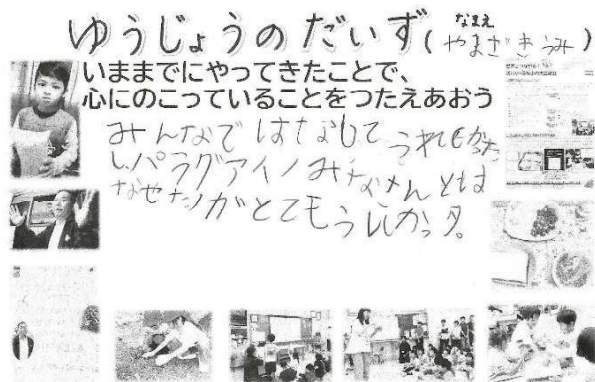 ゆうじょうのだいず(なまえ やまざきうみ)
いままでにやってきたことで、
心にのこっていることをつたえあおう
みんなではなしてうれしかった
しパラグアイノみなさんとは
なせたノがとてもうレかっタ。